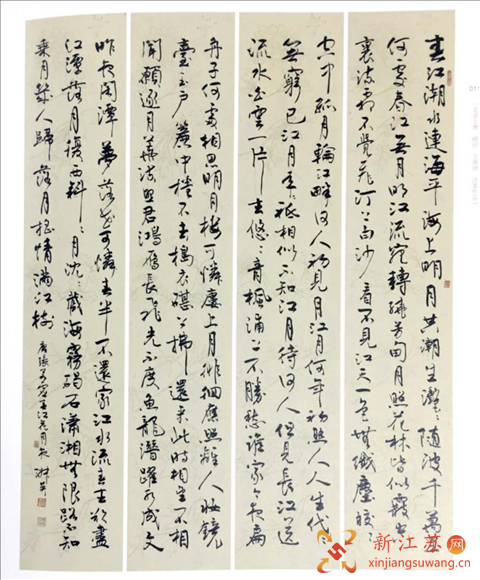 春江潮水連海平海上明月共潮生灩々隨波千萬里
何處春江無月明江流宛轉繞芳甸月照花林皆似霰空
裏流霜不覺飛汀上白沙看不見江天一色無纖塵皎々
空中孤月輪江畔何人初見月江月何年初照人人生代々
無窮已江月年々祇相似不知江月待何人但見長江送
流水白雲一片去悠々青楓浦上不勝愁誰家今夜扁
舟子何處相思明月樓可憐樓上月徘徊應照離人妝鏡
臺玉戶簾中捲不去搗衣砧上拂還來此時相望不相
聞願逐月華流照君鴻雁長飛光不度魚龍潛躍水成文
昨夜閒潭夢落花可憐春半不還家江水流春去欲盡
江潭落月復西斜々月沈々藏海霧碣石瀟湘無限路不知
乘月幾人歸落月搖情滿江樹 唐張若虛春江花月夜
011
新江苏网
xinjiangsuwang.cn